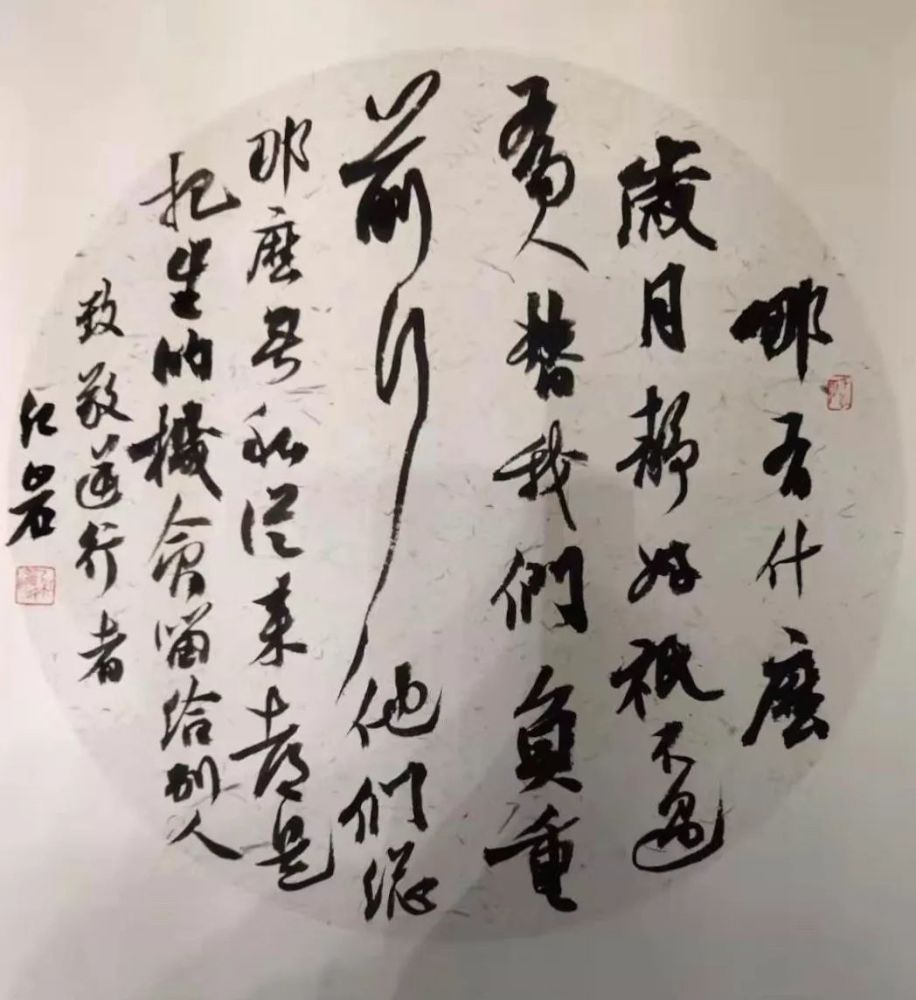 哪有什麼
歲月靜好祇不過
有人替我們負重
前行他們總
那麼無私從来都是
把生的機會留給別人
致敬逆行者